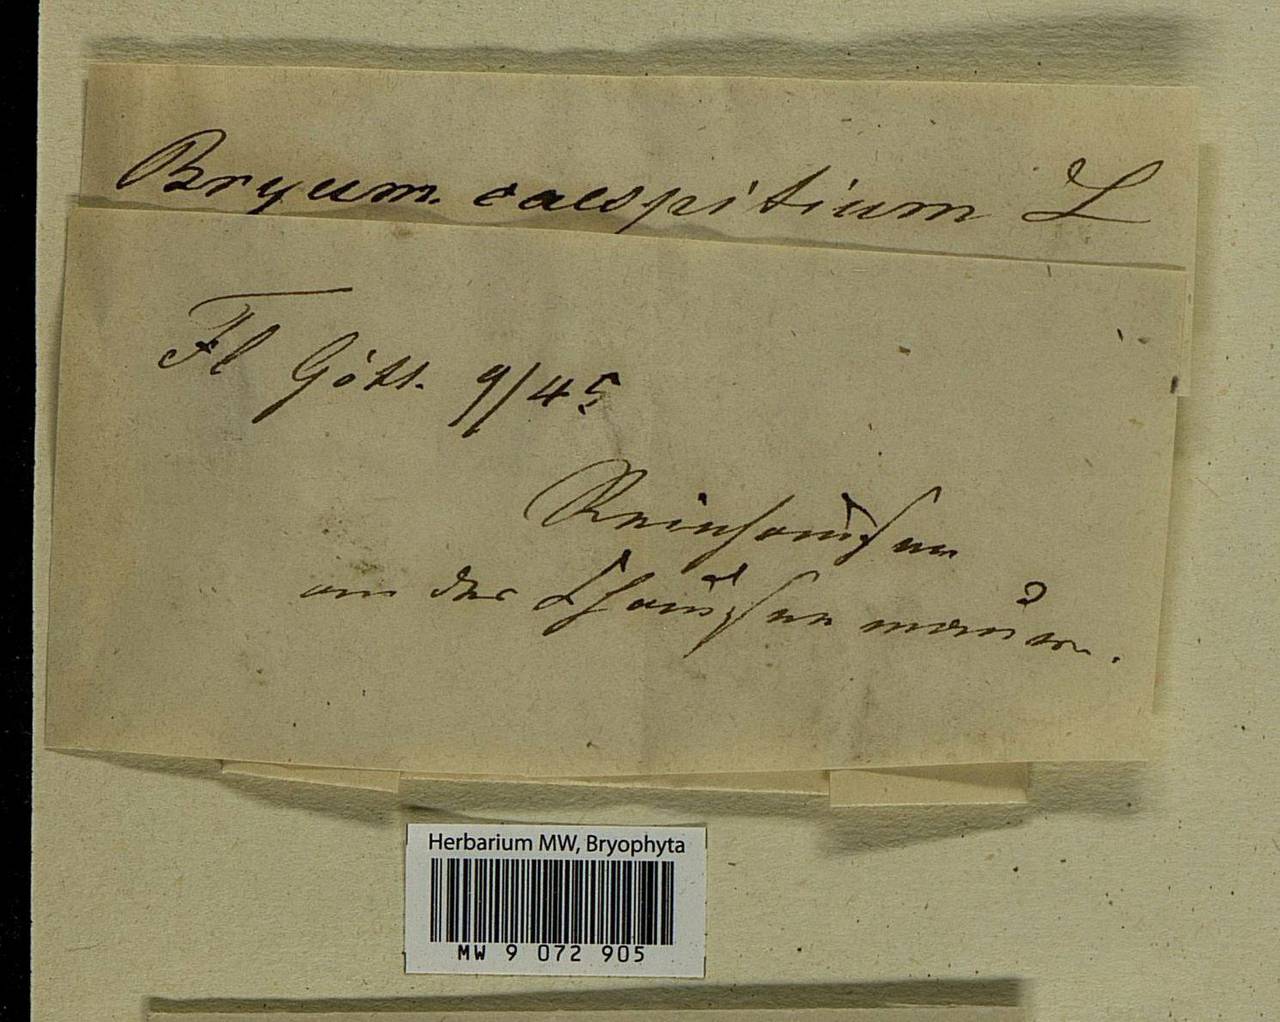 Bryum. caespitium L
Fl Gött. 9/45
Reinhausen
an der Chausseemauer.
Herbarium MW, Bryophyta
MW 9 072 905